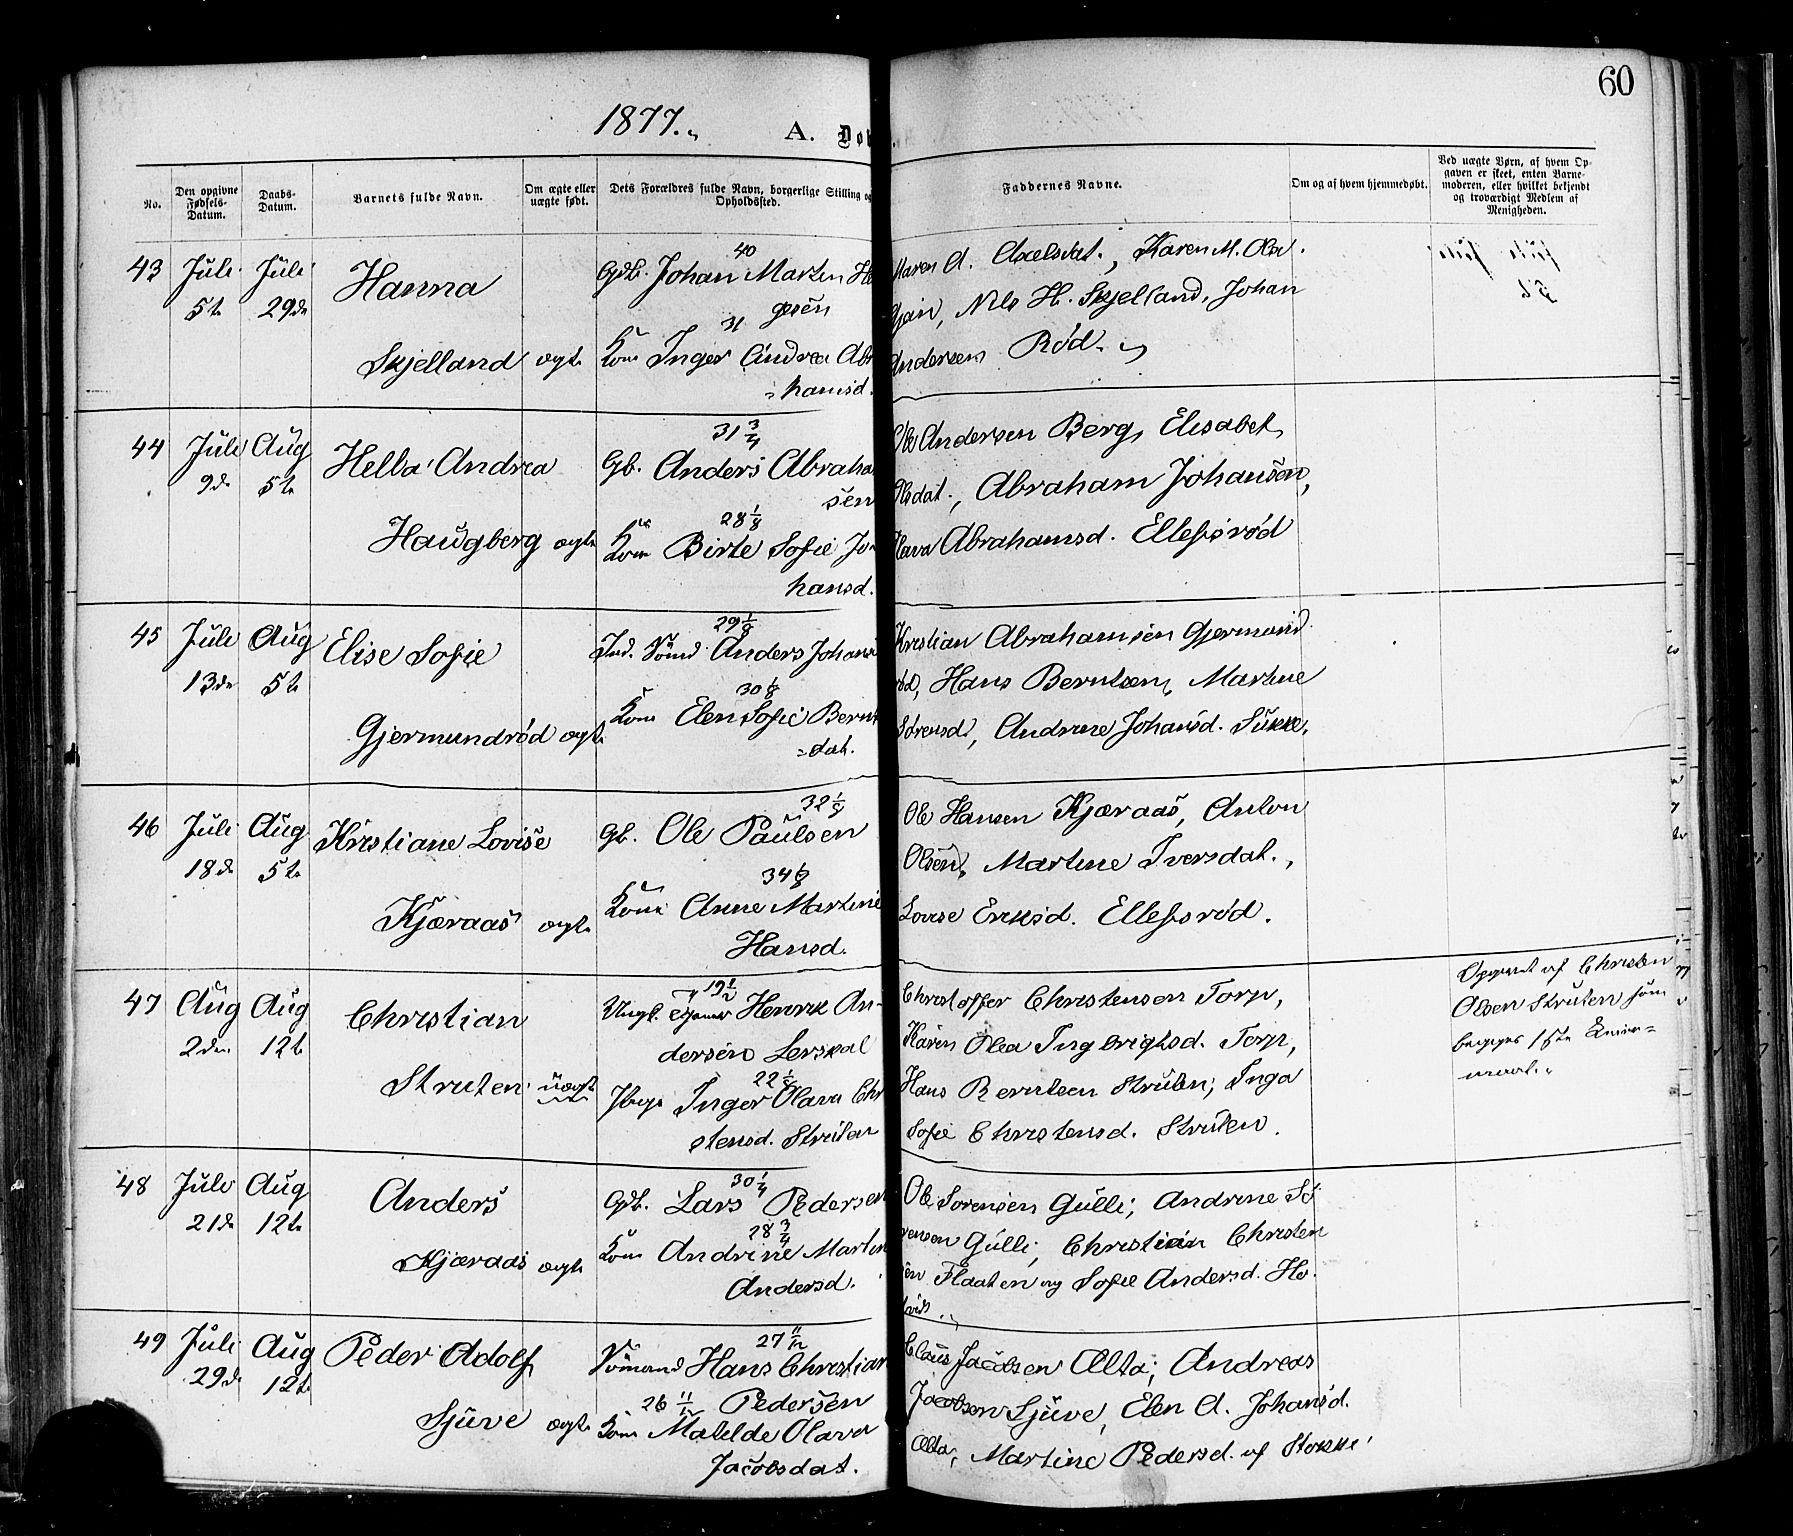 60
1877.
A. Døb
No.
Den opgivne Fødsels-Datum.
Daabs-Datum.
Barnets fulde Navn.
Om ægte eller uægte født.
Dets Forældres fulde Navn, borgerlige Stilling og Opholdssted.
Faddernes Navne.
Om og af hvem hjemmedøbt.
Ved uægte Børn, af hvem Opgaven er skeet, enten Barnemoderen, eller hvilket bekjendt og troværdigt Medlem af Menigheden.
43 Juli 5te Juli 29de Hanna
Skjelland ægte
40
Gdb. Johan Martin
gesen
31
Kone Inger Andrea Abr
hamsd.
Maren A. Axelsdat., Karen M.
Nils H. Skjelland, Johan
Andersen Rød.
44 Juli 9de Aug 5te Hella Andrea
Haugberg ægte
31 3/4
Gb. Anders Abraha
sen
28 1/8
Kone Birte Sofie Jo
hansd.
Ole Andersen Berg, Elisabet
Olsdat., Abraham Johansen,
Olava Abrahamsd. Ellefsrød
45 Juli 13de Aug 5te Elise Sofie
Gjermundrød ægte
29 1/8
Ind. Sømd Anders Johans
30 1/8
Kone Elen Sofie Bernt
dat.
Kristian Abrahamsen Gjermund
rød, Hans Berntsen, Martine
Sørensd, Andrine Johansd.
46 Juli 18de Aug 5te Kristiane Lovise
Kjæraas ægte
32 1/8
Gb. Ole Paulsen
34
Kone Anne Martine
Hansd.
Ole Hansen Kjæraas, Anton
Olsen, Martine Iversdat.,
Lovise Eriksd. Ellefsrød.
47 Aug 2den Aug 12te Christian
Struten uægte
19 1/2
Ungk. Henrik An-
dersen Lerskal
22
Pige Inger Olava Chr
stensd. Struten
Christoffer Christensen Torp,
Karen Olea Ingbrigtsd. Torp,
Hans Berntsen Struten, Inga
Sofie Christensd. Struten.
Opgivet af Christen
Olsen Struten som
begges 1ste Leier-
maal.
48 Juli 21de Aug 12te Anders
Kjæraas ægte
30 1/4
Gdb. Lars Pedersen
28 3/4
Kone Andrine Martin
Andersd.
Ole Sørensen Gulli, Andrine Sø
rensen Gulli, Christian Christen
sen Flaaten og Sofie Andersd. Ho
tvidt
49 Juli 29de Aug 12te Peder Adolf
Sjuve ægte
27 11/12
Sømand Hans Christian
Pedersen
26
Kone Matilde Olava
Jacobsdat.
Claus Jacobsen Ælta, Andreas
Jacobsen Sjuve, Elen A. Johansd.
Ælta, Martine Pedersd. af Stokke